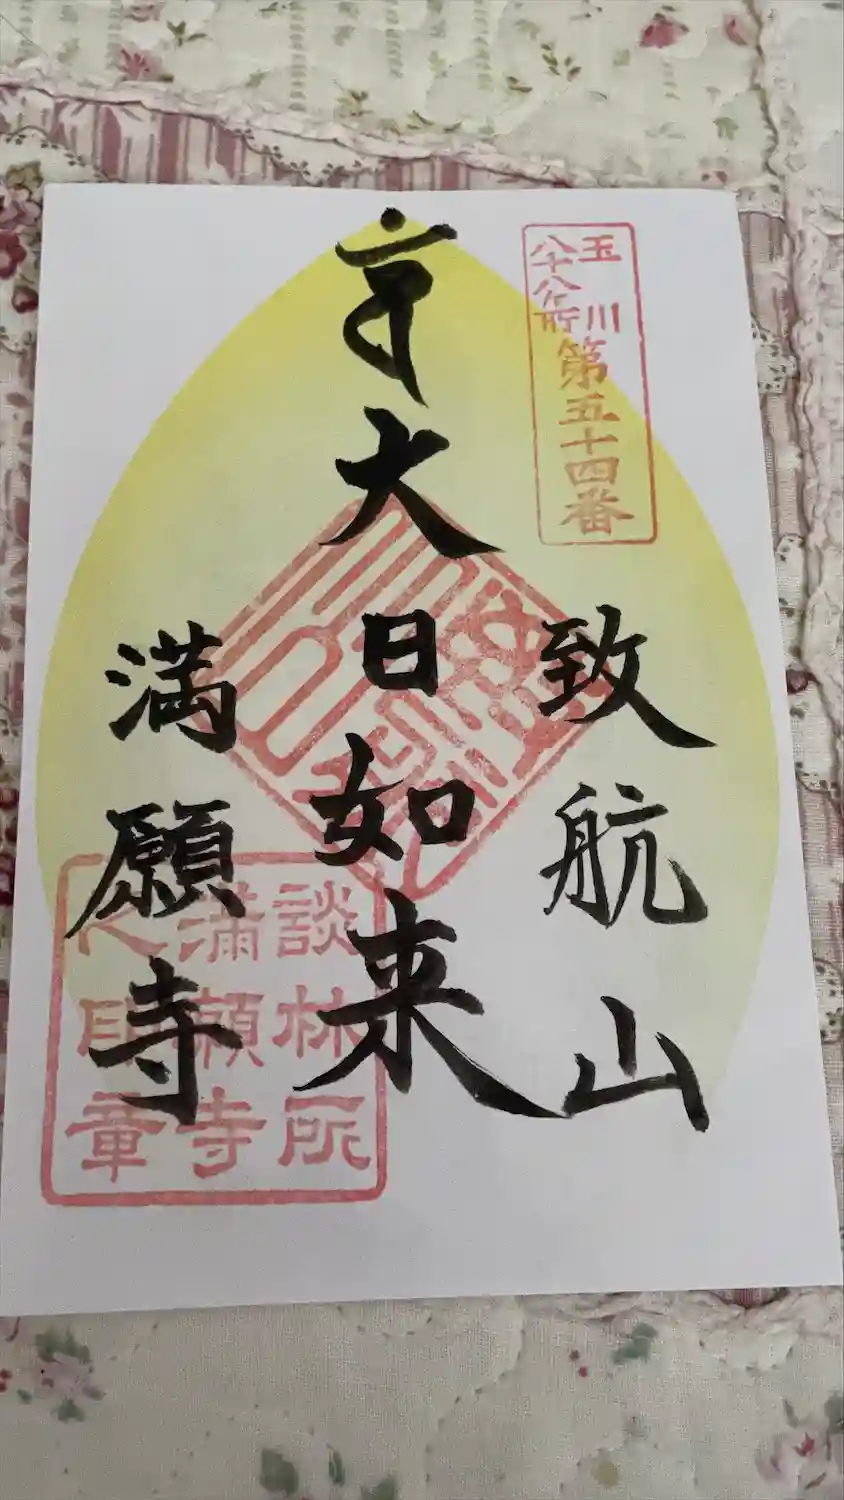 玉川
八十八ケ所
第五十四番
致航山
大日如来
満願寺
談林所
滿願寺
之印章